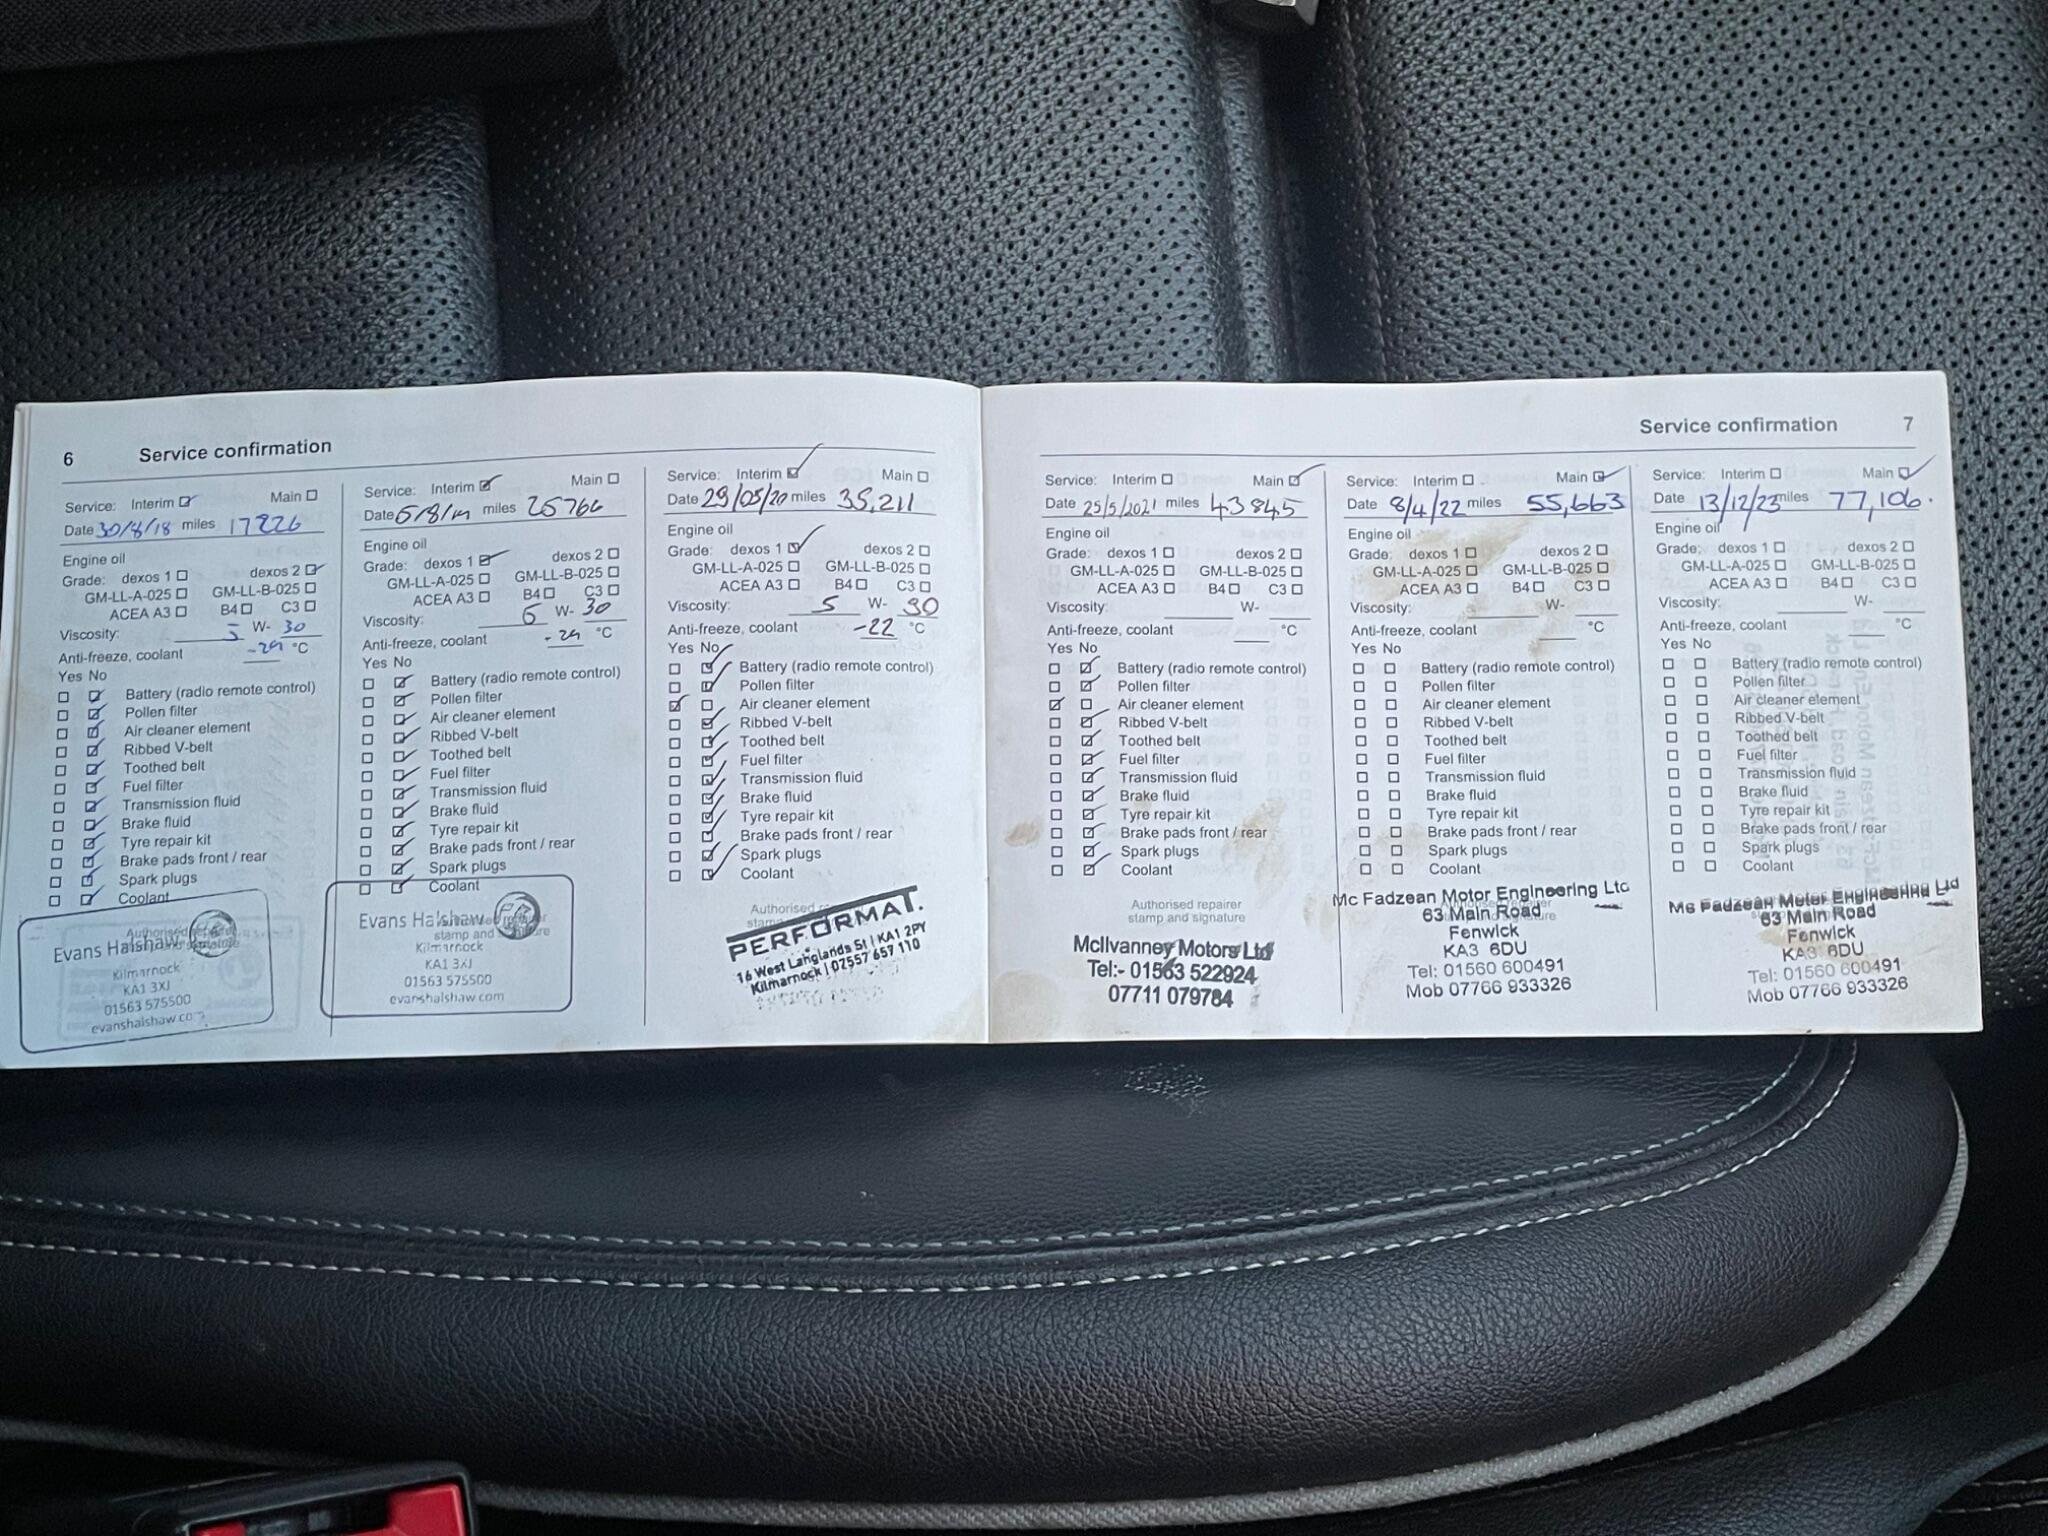 6 Service confirmation
Service: Interim Main
Date 30/8/18 miles 17226
Engine oil
Grade: dexos 1 dexos 2
GM-LL-A-025 GM-LL-B-025
ACEA A3 B4 C3
Viscosity: 5 W- 30
Anti-freeze, coolant °C
Yes No
Battery (radio remote control)
Pollen filter
Air cleaner element
Ribbed V-belt
Toothed belt
Fuel filter
Transmission fluid
Brake fluid
Tyre repair kit
Brake pads front / rear
Spark plugs
Coolant
Evans Halshaw
Kilmarnock
KA1 3XJ
01563 575500
evanshalshaw.com
Service: Interim Main
Date miles 25766
Engine oil
Grade: dexos 1 dexos 2
GM-LL-A-025 GM-LL-B-025
ACEA A3 B4 C3
Viscosity: 5 W- 30
Anti-freeze, coolant °C
Yes No
Battery (radio remote control)
Pollen filter
Air cleaner element
Ribbed V-belt
Toothed belt
Fuel filter
Transmission fluid
Brake fluid
Tyre repair kit
Brake pads front / rear
Spark plugs
Coolant
Evans Halshaw
stamp and signature
Kilmarnock
KA1 3XJ
01563 575500
evanshalshaw.com
Service: Interim Main
Date 29/05/20 miles 35,211
Engine oil
Grade: dexos 1 dexos 2
GM-LL-A-025 GM-LL-B-025
ACEA A3 B4 C3
Viscosity: 5 W- 30
Anti-freeze, coolant -22 °C
Yes No
Battery (radio remote control)
Pollen filter
Air cleaner element
Ribbed V-belt
Toothed belt
Fuel filter
Transmission fluid
Brake fluid
Tyre repair kit
Brake pads front / rear
Spark plugs
Coolant
Authorised
PERFORMAT.
16 West Langlands St | KA1 2PY
Kilmarnock | 07557 657 110
Service confirmation 7
Service: Interim Main
Date 25/5/2021 miles 43845
Engine oil
Grade: dexos 1 dexos 2
GM-LL-A-025 GM-LL-B-025
ACEA A3 B4 C3
Viscosity: W-
Anti-freeze, coolant °C
Yes No
Battery (radio remote control)
Pollen filter
Air cleaner element
Ribbed V-belt
Toothed belt
Fuel filter
Transmission fluid
Brake fluid
Tyre repair kit
Brake pads front / rear
Spark plugs
Coolant
Authorised repairer
stamp and signature
McIlvanney Motors Ltd
Tel:- 01563 522924
07711 079784
Service: Interim Main
Date 8/4/22 miles 55,663
Engine oil
Grade: dexos 1 dexos 2
GM-LL-A-025 GM-LL-B-025
ACEA A3 B4 C3
Viscosity: W-
Anti-freeze, coolant °C
Yes No
Battery (radio remote control)
Pollen filter
Air cleaner element
Ribbed V-belt
Toothed belt
Fuel filter
Transmission fluid
Brake fluid
Tyre repair kit
Brake pads front / rear
Spark plugs
Coolant
Mc Fadzean Motor Engineering Ltd
63 Main Road
Fenwick
KA3 6DU
Tel: 01560 600491
Mob 07766 933326
Service: Interim Main
Date 13/12/23 miles 77,106.
Engine oil
Grade: dexos 1 dexos 2
GM-LL-A-025 GM-LL-B-025
ACEA A3 B4 C3
Viscosity: W-
Anti-freeze, coolant °C
Yes No
Battery (radio remote control)
Pollen filter
Air cleaner element
Ribbed V-belt
Toothed belt
Fuel filter
Transmission fluid
Brake fluid
Tyre repair kit
Brake pads front / rear
Spark plugs
Coolant
Mc Fadzean Motor Engineering Ltd
63 Main Road
Fenwick
KA3 6DU
Tel: 01560 600491
Mob 07766 933326